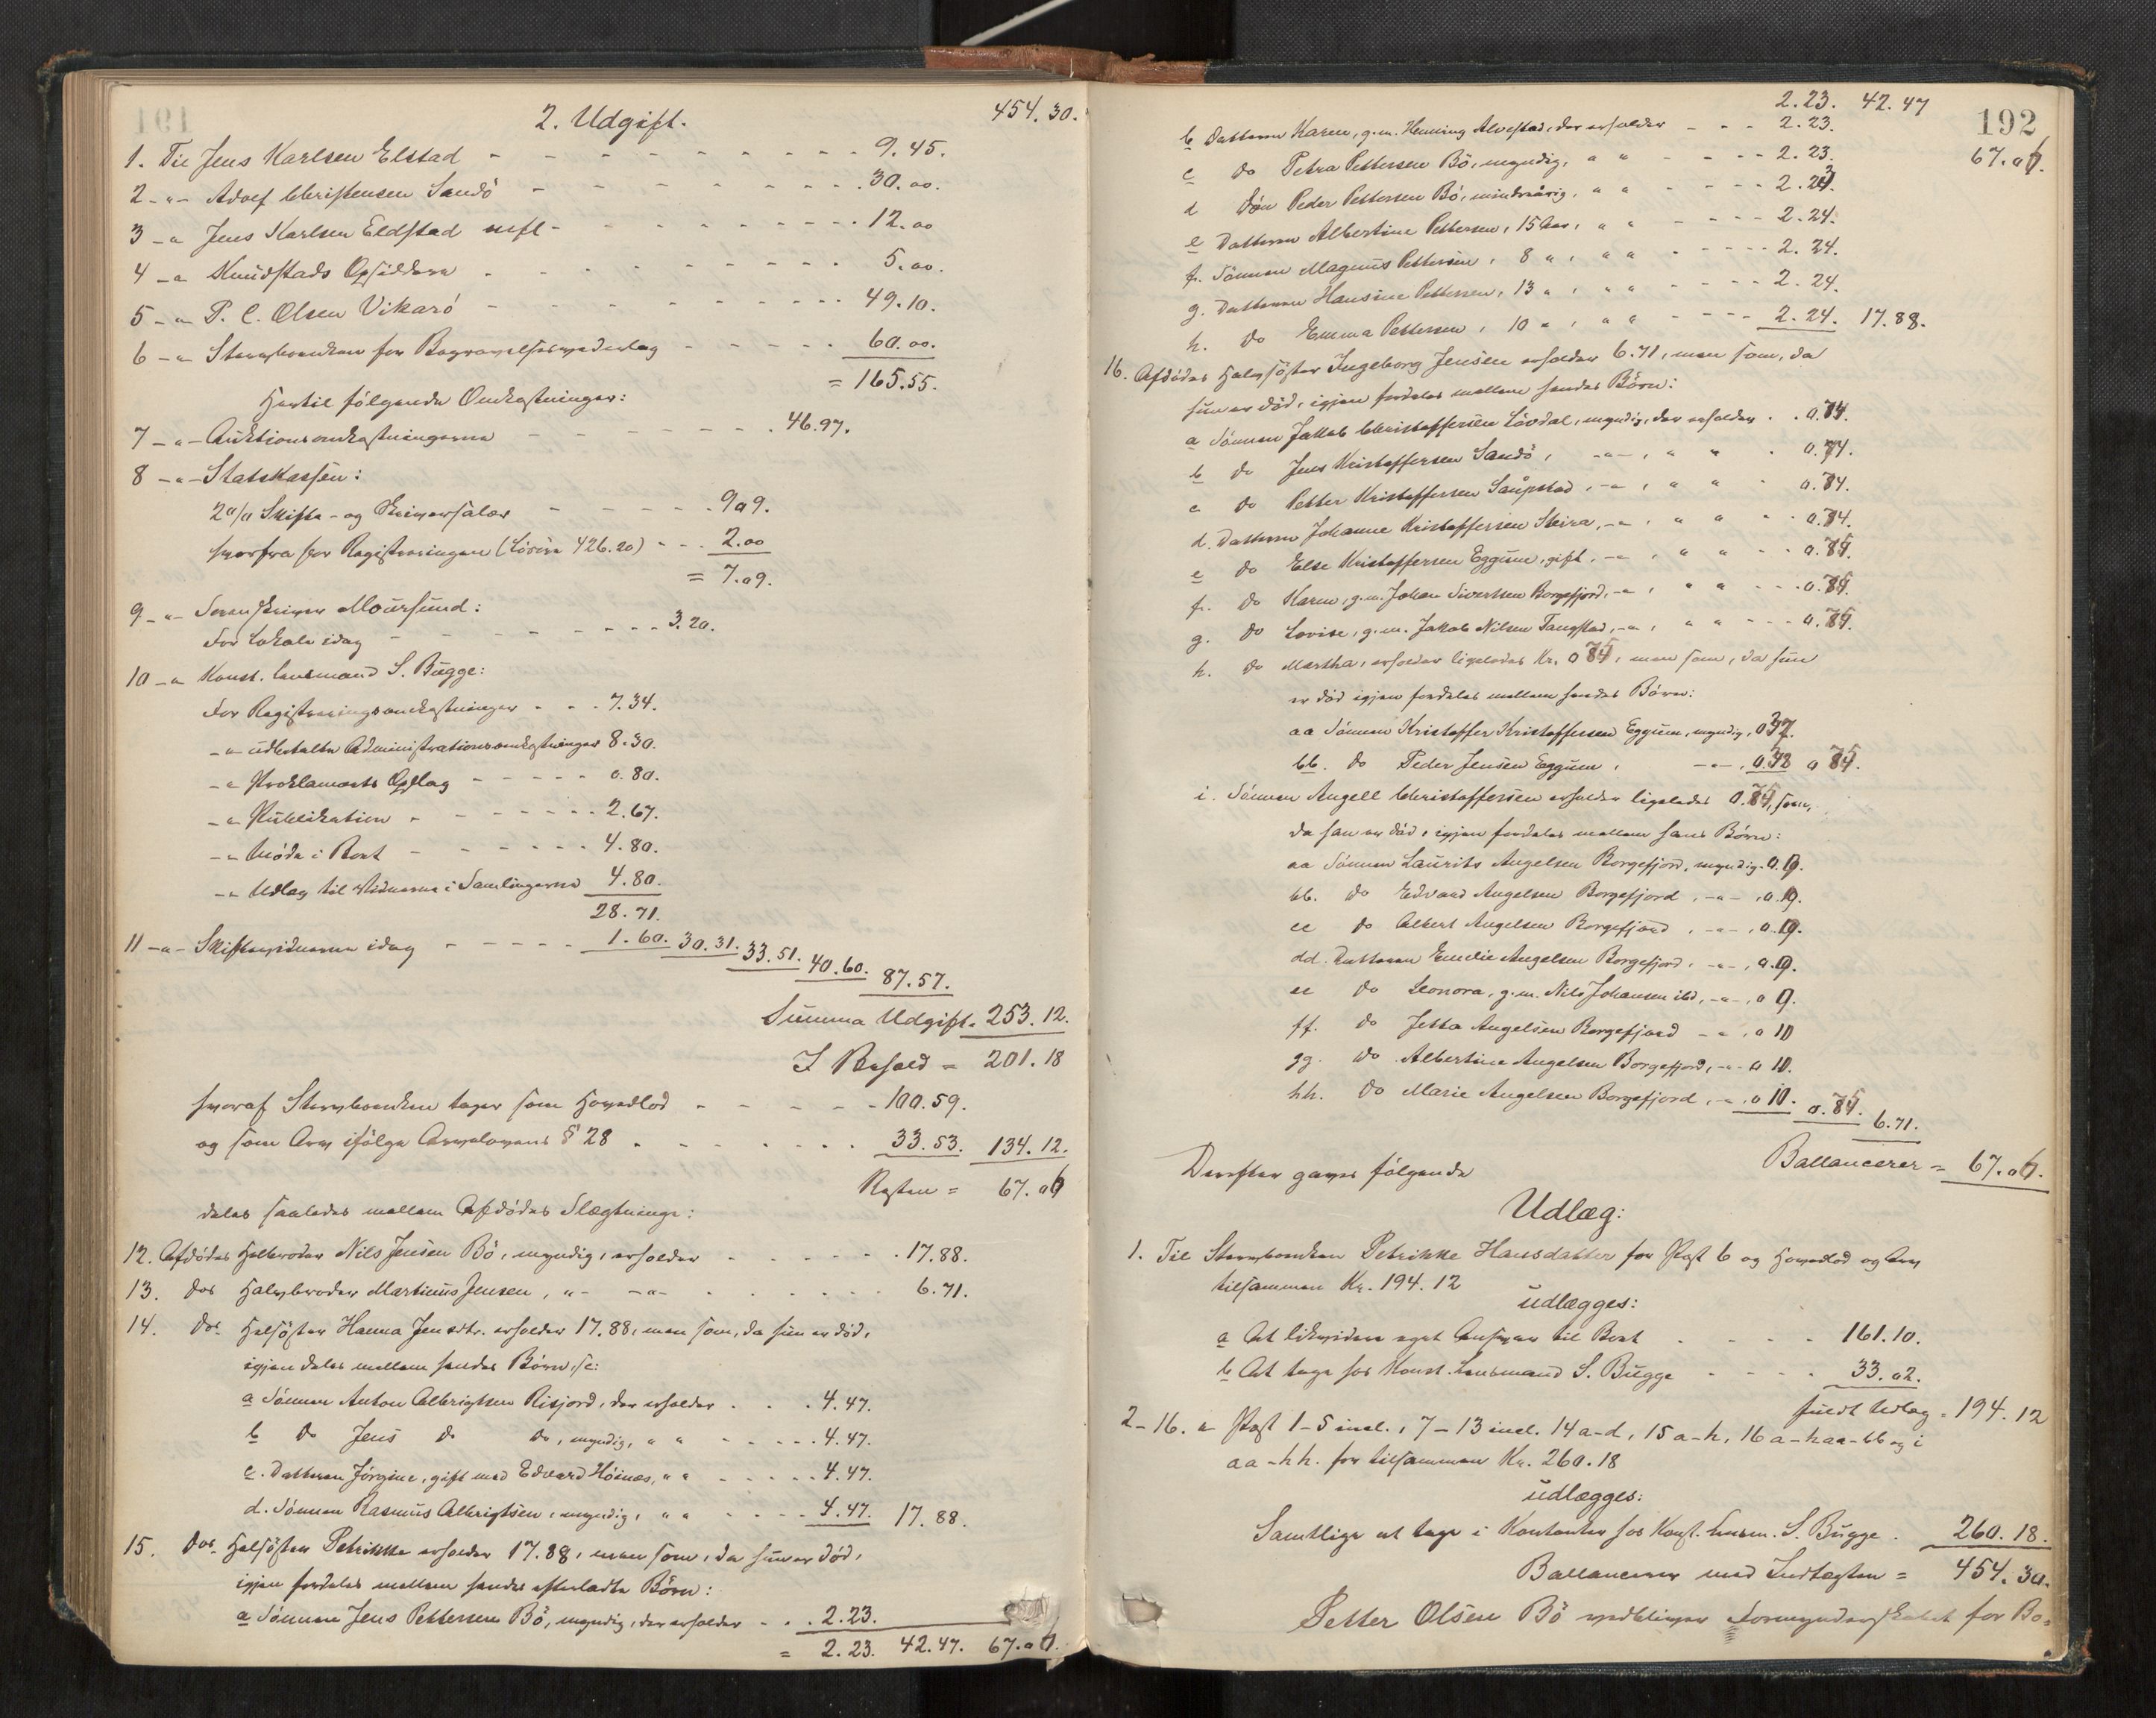 191
2. Udgift. 454.30.
1. Til Jens Karlsen Elstad - - - 9.45.
2 -"- Adolf Christensen Sandö - - - 30.00.
3 -" Jens Karlsen Eldstad - - - 12.00
4 -" Knudstads Opsiddere - - - 5.00.
5 -"- P. C. Olsen Vikarö - - - 49.10.
6 -" Stervboenken for Begravelsesvederlag - - - 60.00.
= 165.55.
Hertil følgende Omkostninger:
7 -"- Auktionsomkostningerne - - - 46.97.
8 -"- Statskassen:
2 0/0 Skifte- og Skriversalær - - - 9.09.
herfra for Registreringen (Løsøre 426.20) - - - 2.00
= 7.09.
9 -"- Sorenskriver Moursund:
For Lokale idag - - - 3.20.
10 -" Konst. Lensmand S. Bugge:
For Registreringsomkostninger - - - 7.34.
-" udbetalte Administrationsomkostninger 8.30.
-" Proklamaets Opslag - - - 0.80.
-" Publikation - - - 2.67.
-" Møde i Boet - - - 4.80.
-" Udlæg til Vidnerne i Samlingerne 4.80.
28.71.
11 -"- Skiftevidnerne idag - - - 1.60. 30.31. 33.51. 40.60. 87.57.
Summa Udgift = 253.12.
I Behold = 201.18
hvoraf Stervboenken tager som Hovedlod - - - 100.59.
og som Arv ifølge Arvelovens § 28 - - - 33.53. 134.12.
Resten = 67.06
deles saaledes mellem Afdødes Slægtninge:
12. Afdødes Helbroder Nils Jensen Bö, myndig, erholder - - - 17.88.
13. Dos Halvbroder Martinus Jensen, "- -"- - - - 6.71.
14. Dos Helsöster Hanna Jensdtr. erholder 17.88, men som, da hun er död,
igjen deles mellem hendes Børn, sc:
a Sønnen Anton Albrigtsen Risjord, der erholder - - - 4.47.
b Do Jens Do Do, myndig, " " - - - 4.47.
c. Datteren Jörgine, gift med Edvard Höines, " " - - - 4.47.
d. Sønnen Rasmus Albrigtsen, myndig, " " - - - 4.47. 17.88.
15. Dos Helsöster Petrikke erholder 17.88, men som, da hun er död,
igjen fordeles mellem hendes efterladte Børn:
a Sønnen Jens Pettersen Bö, myndig, der erholder - - - 2.23.
= 2.23. 42.47. 67.06.
192
2.23. 42.47 67.06.
b Datteren Karen, g.m. Henning Alvestad, der erholder - - - 2.23.
c do Petra Pettersen Bö, myndig, " " - - - 2.23.
d Søn Peder Pettersen Bö, mindreårig, " " - - - 2.23.
e Datteren Albertine Pettersen, 15 Aar, " " - - - 2.24.
f. Sønnen Magnus Pettersen, 8 ", " " - - - 2.24.
g. Datteren Hansine Pettersen, 13 ", " " - - - 2.24.
h. do Emma Pettersen, 10 ", " " - - - 2.24. 17.88.
16. Afdødes Halvsöster Ingeborg Jensen erholder 6.71, men som, da
hun er död, igjen fordeles mellem hendes Børn:
a Sønnen Jakob Christoffersen Lövdal, myndig, der erholder - - 0.74.
b do Jens Kristoffersen Sandö, -"-, " " - 0.74.
c do Petter Kristoffersen Saupstad, -", " " - 0.74.
d. Datteren Johanne Kristoffersen Steira, -", " " - - 0.74.
e do Else Kristoffersen Eggum, gift, -", " " - - 0.75.
f. do Karen, g.m. Johan Sivertsen Borgefjord, -", " " - - - 0.75.
g. do Lovise, g.m. Jakob Nilsen Tangstad, -", " " - - - 0.75.
h. do Martha, erholder ligeledes Kr. 0 75, men som, da hun
er död igjen fordeles mellem hendes Børn:
aa Sønnen Kristoffer Kristoffersen Eggum, myndig, 0 37.
bb. do Peder Jensen Eggum, -"-, 0.38 0 75.
i. Sønnen Angell Christoffersen erholder ligeledes 0.75, som,
da han er död, igjen fordeles mellem hans Børn:
aa Sønnen Laurits Angelsen Borgefjord, myndig. 0.9.
bb. do Edvard Angelsen Borgefjord, -"-, 0.9.
cc do Albert Angelsen Borgefjord, -"-, 0.9.
dd. Datteren Emelie Angelsen Borgefjord, -"-, 0.9.
ee do Leonora, g.m. Nils Johansen ibd, -"-, 0 9.
ff. do Jetta Angelsen Borgefjord -", 0 10
gg. do Albertine Angelsen Borgefjord, -"- 0 10.
hh. do Marie Angelsen Borgefjord, -", 0 10. 0.75. 6.71.
Ballancerer = 67.06.
Derefter gaves følgende
Udlæg:
1. Til Stervboenken Petrikke Hansdatter for Post 6 og Hovedlod og Arv
tilsammen Kr. 194.12
udlægges:
a At likvidere eget Ansvar til Boet - - - 161.10.
b At tage hos Konst. Lensmand S. Bugge - - - 33.02.
fuldt Udlæg = 194.12
2-16. " Post 1-5 incl., 7-13 incl. 14 a-d, 15 a-h, 16 a-h aa-bb og i
aa-hh. for tilsammen Kr. 260.18
udlægges:
Samtlige at tage i Kontanter hos Konst. Lensm. S. Bugge. 260.18.
Ballancerer med Indtægten = 454.30.
Petter Olsen Bö vedbliver Formynderskabet for Bo-